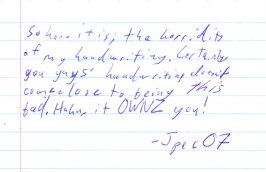 So here it is; the horridity
of my handwriting. Certainly
you guys' handwriting doesn't
come close to being this
bad. Haha, it OWNZ you!
-Jpec07